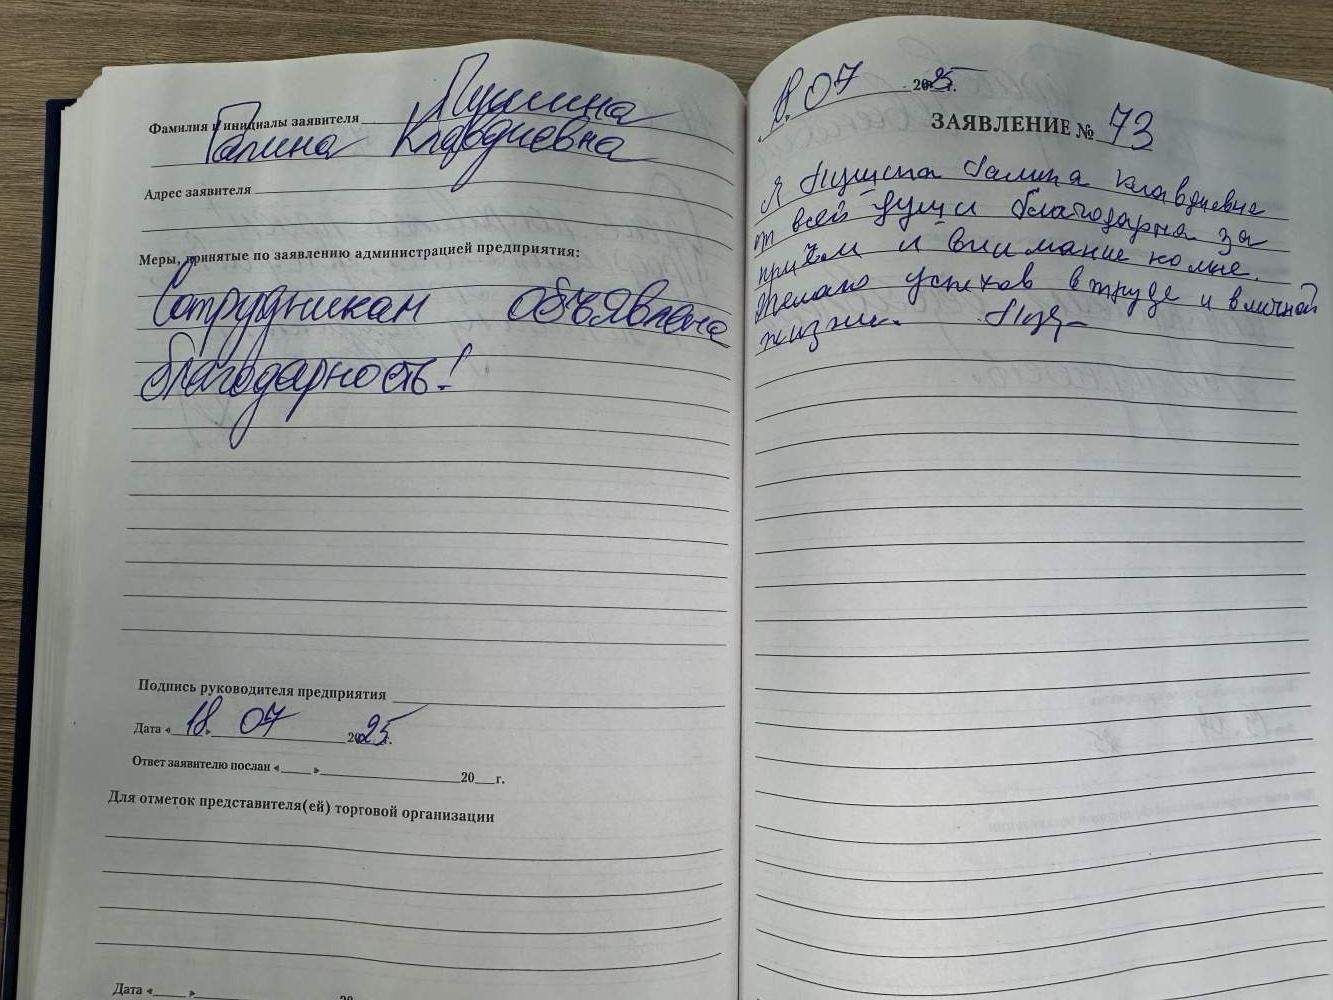 Фамилия и инициалы заявителя Пушина
Галина Клавдиевна
Адрес заявителя
Меры, принятые по заявлению администрацией предприятия:
Сотрудникам объявлена
благодарность!
Подпись руководителя предприятия
Дата « 18 » 07 2025г.
Ответ заявителю послан «____ »____ 20___г.
Для отметок представителя(ей) торговой организации
Дата «____ »____ 20
18.07 2025г.
ЗАЯВЛЕНИЕ № 73
Я Галина Клавдиевна
от всей души благодарна за
приём и внимание ко мне.
Желаю успехов в труде и в личной
жизни.